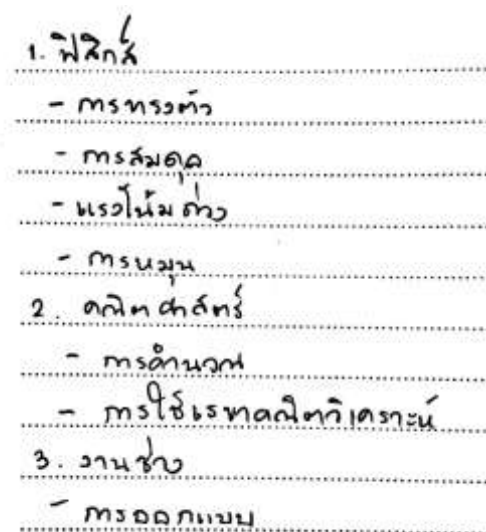 1. ฟิสิกส์
- การทรงตัว
- การสมดุล
- แรงโน้มถ่วง
- การหมุน
2. คณิตศาสตร์
- การคำนวณ
- การใช้เรขาคณิตวิเคราะห์
3. งานช่าง
- การออกแบบ